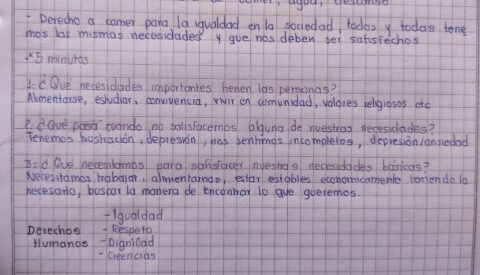 comer, agua, descanso
- Derecho a comer para la igualdad en la sociedad, todos y todas tene
mos las mismas necesidades y que nos deben ser satisfechos
5 minutos
1.- ¿Qué necesidades importantes tienen las personas?
Alimentarse, estudiar, convivencia, vivir en comunidad, valores religiosos etc
2.- ¿Qué pasa cuando no satisfacemos alguna de nuestras necesidades?
Tenemos frustración, depresión, nos sentimos incompletos, depresión/ansiedad
3.- ¿Que necesitamos para satisfacer nuestras necesidades básicas?
Necesitamos trabajar, alimentarnos, estar estables economicamente teniendo lo
necesario, buscar la manera de encontrar lo que queremos.
Derechos
Humanos
- Igualdad
- Respeto
- Dignidad
- Creencias